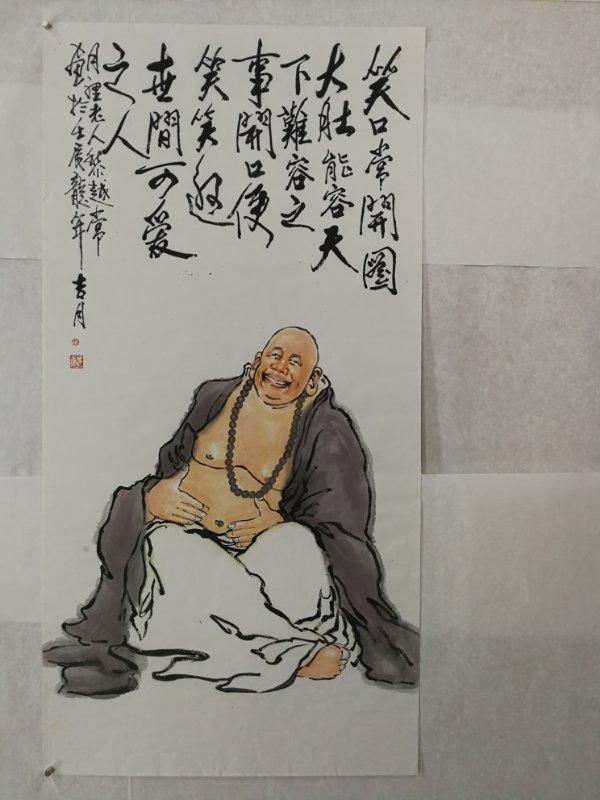 笑口常開圖
大肚能容天
下難容之
事開口便
笑笑
世間可愛
之人
月老人黎越常
畫於壬辰龍年吉月